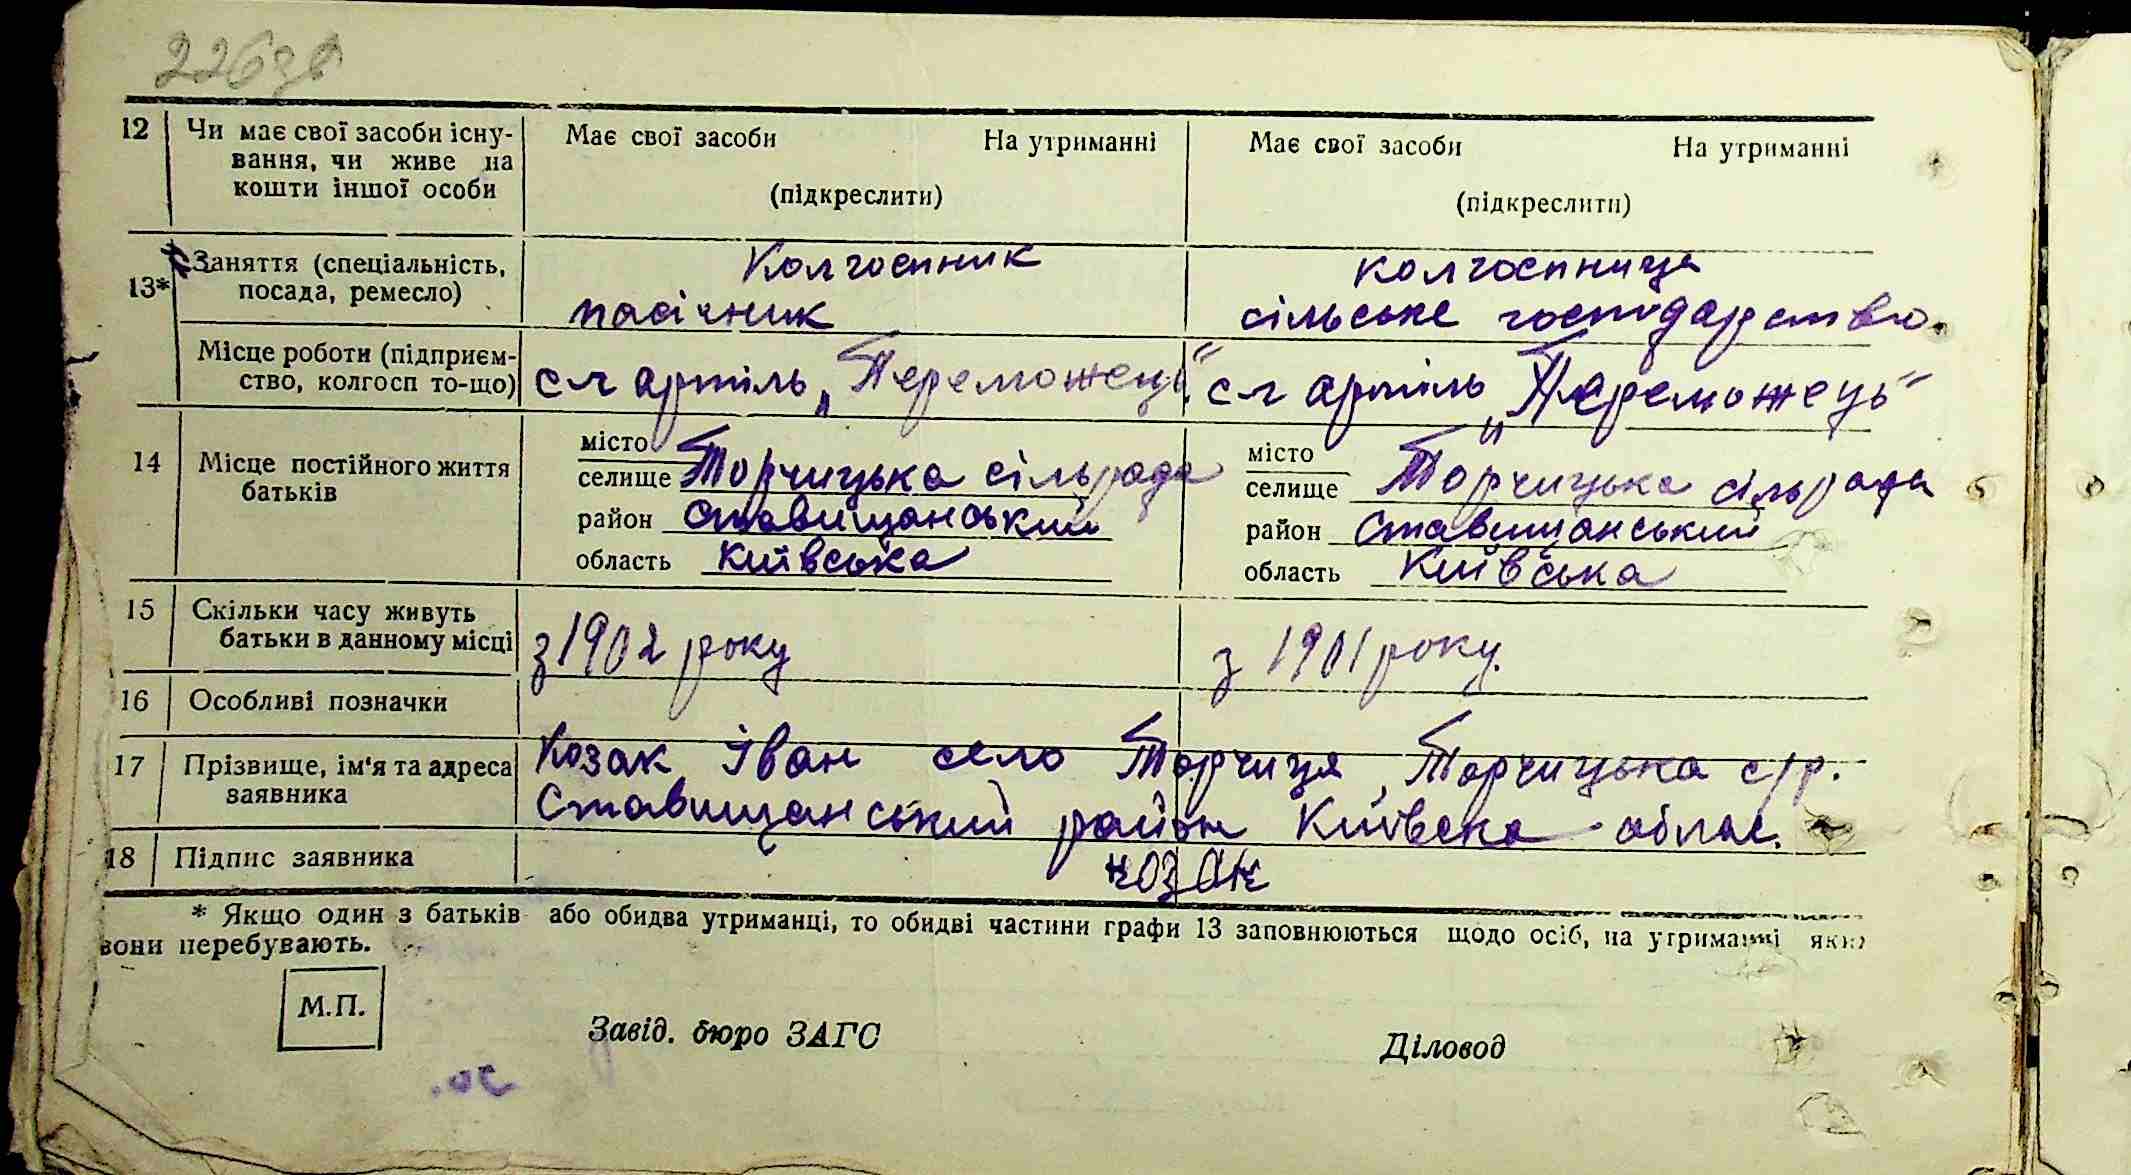 226зв
12 Чи має свої засоби існу- Має свої засоби На утриманні Має свої засоби На утриманні
вання, чи живе на
кошти іншої особи (підкреслити) (підкреслити)
Заняття (спеціальність, Колгоспник колгоспниця
13* посада, ремесло) пасічник сільське господарство.
Місце роботи (підприєм-
ство, колгосп то-що) с/г артіль „Переможець" с/г артіль „Переможець"
місто місто
14 Місце постійного життя селище Торчицька сільрада селище Торчицька сільрада
батьків район Ставищанський район Ставищанський
область Київська область Київська
15 Скільки часу живуть
батьки в данному місці з 1902 року з 1901 року.
16 Особливі позначки
17 Прізвище, ім'я та адреса Козак Іван село Торчиця, Торчицька с/р.
заявника Ставищанський район Київська облас.
18 Підпис заявника козак
* Якщо один з батьків або обидва утриманці, то обидві частини графи 13 заповнюються щодо осіб, на утриманні яких
вони перебувають.
М.П.
Завід. бюро ЗАГС Діловод